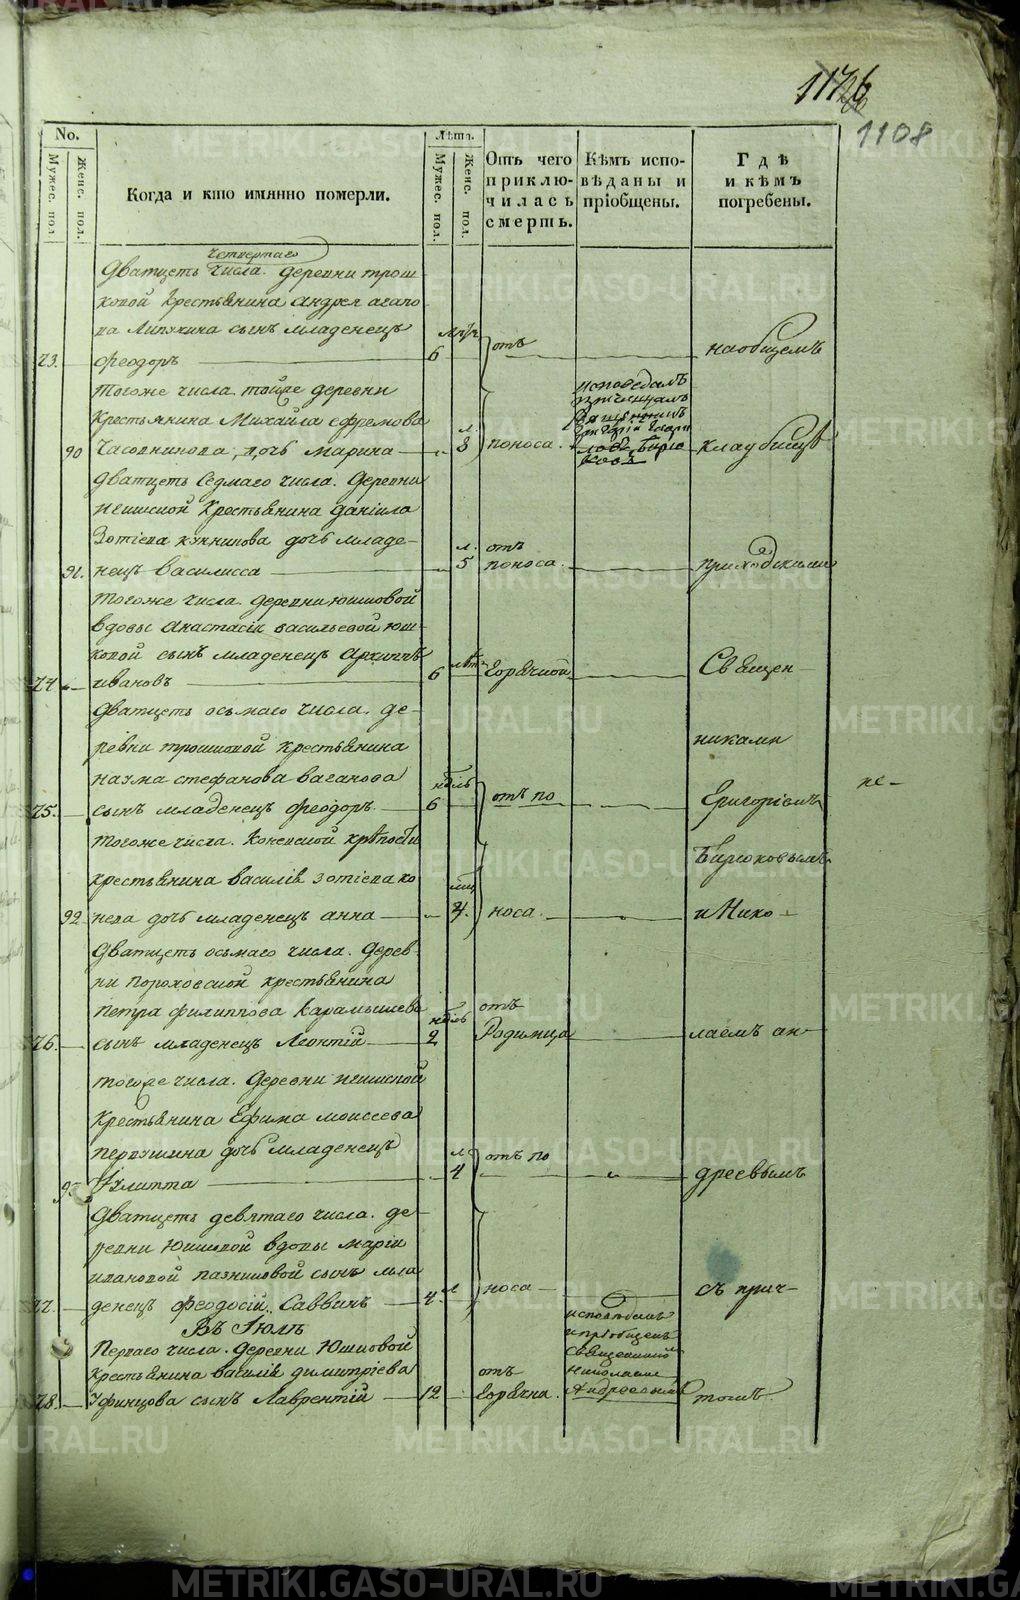 1126
1108
No.
Мужес. пол.
Женс. пол.
Когда и кто имянно померли.
Лѣта.
Мужес. пол.
Женс. пол.
Отъ чего приклю-чилась смерть.
Кѣмъ испо-вѣданы и прiобщены.
Гдѣ и кѣмъ погребены.
четвертаго
Дватцеть числа. деревни трош-
ковой крестьянина андрея агапо
ва Липухина сынъ младенецъ
73. феодоръ 6 отъ наобщемъ
тогоже числа тойже деревни
крестьянина Михайла ефремова
90 Часовникова дочь марина 8 поноса. кладбищѣ
исповедалъ
Дватцеть седмаго числа. деревни
крестьянина данiила
Зотiева дочь младе-
91. нецъ василисса л. 5 отъ поноса. приходскими
тогоже числа деревни юшковой
вдовы анастасiи васильевой юш-
ковой сынъ младенецъ архиппъ
74 ивановъ 6 лѣт. Горячкой Священ-
Дватцеть осьмаго числа. де-
ревни трошковой крестьянина
наума стефанова ваганова никами
75. сынъ младенецъ феодоръ недѣль 6 отъ по Григорiемъ
не-
тогоже числа. Коневской крѣпости
крестьянина василiя зотiева ко Бирюковымъ
92. нева дочь младенецъ анна 4. носа. и Нико-
Дватцеть осьмаго числа. дерев-
ни пороховской крестьянина
петра филиппова Карамышева
76. сынъ младенецъ Леонтiй недѣль 2 отъ Родимца лаемъ ан-
тогоже числа. деревни
крестьянина Ефима моисеева
первушина дочь младенецъ
93. Улитта л. 4 отъ по дреевымъ
Дватцеть девятаго числа. де-
ревни юшковой вдовы марiи
ивановой сынъ мла
77. денецъ феодосiй Саввинъ 4. л носа съ прич-
Въ Iюлѣ
Перваго числа. деревни Юшковой
крестьянина василiя димитрiева
78. Уфинцова сынъ Лаврентiй 12 отъ Горячки. томъ
исповеданъ
и прiобщенъ
священникомъ
николаемъ
Андреевымъ
METRIKI.GASO-URAL.RU